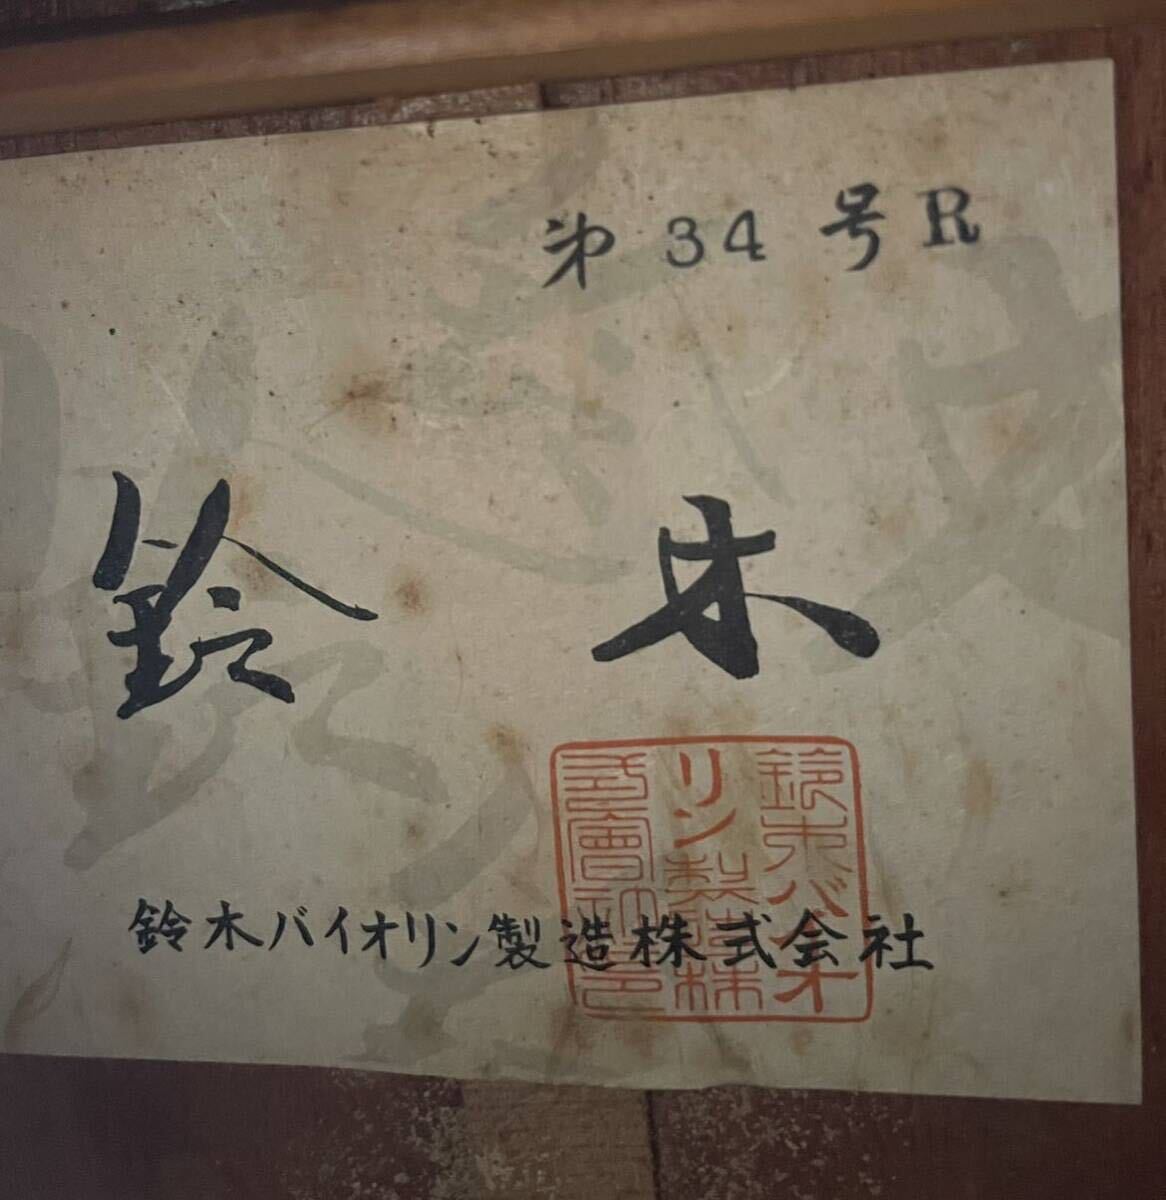 第34号R
鈴木
鈴木バイオリン製造株式会社
鈴木バイオ
リン製造株
式會社之印